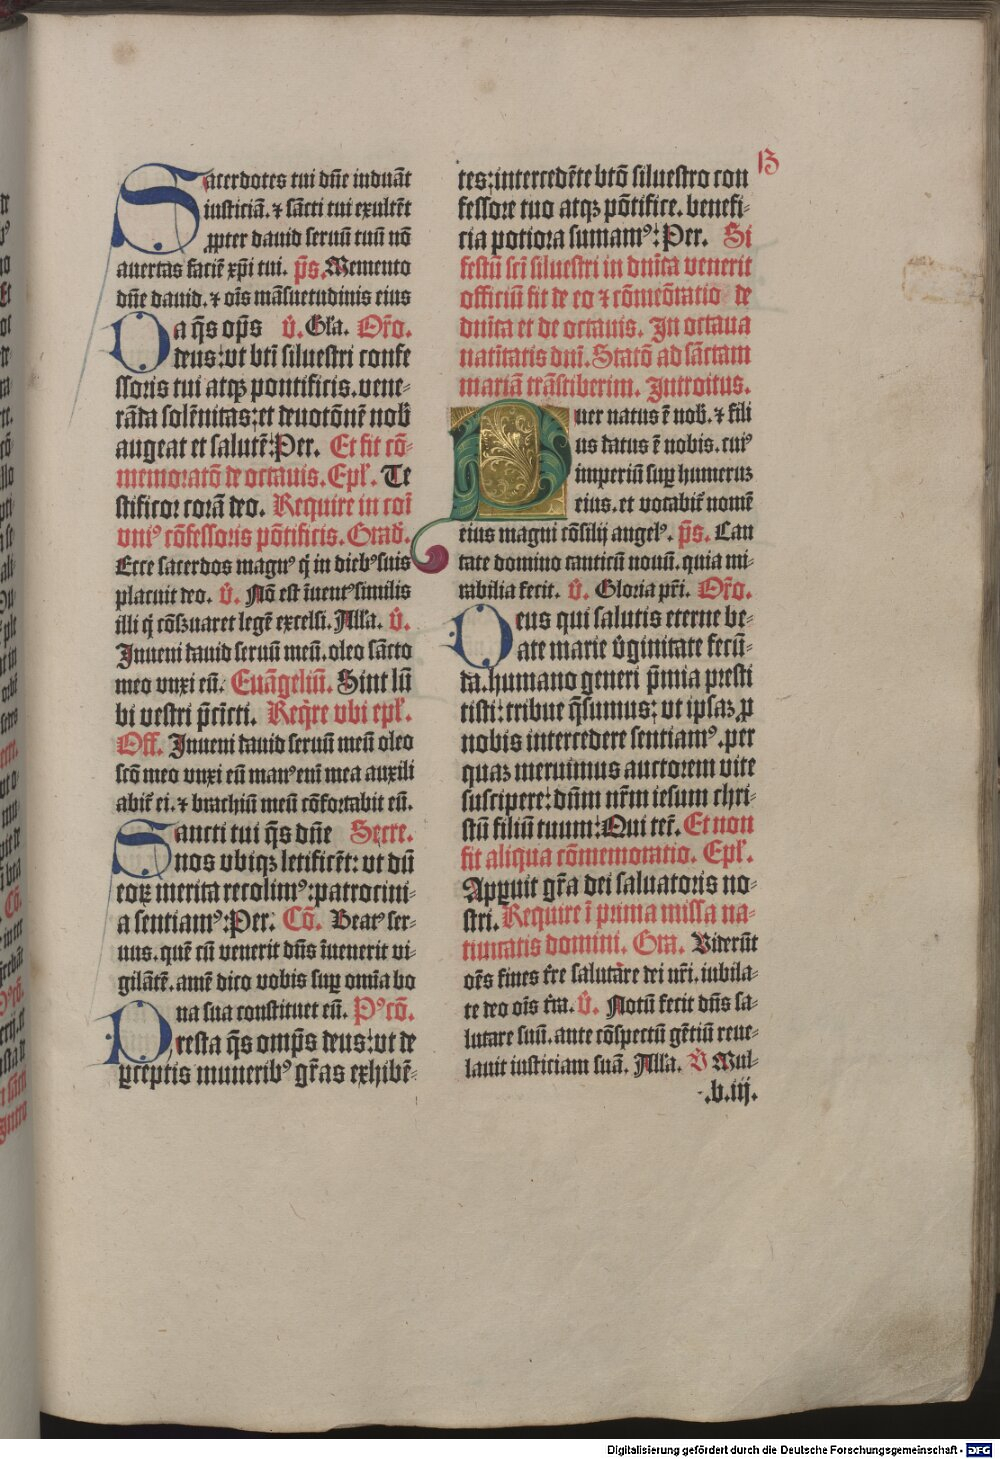 B
Sacerdotes tui dñe induāt
iusticiā. ⁊ sācti tui exultēt
ꝓpter dauid seruū tuū nō
auertas faciē xp̄i tui. p̄s. Memento
dñe dauid. ⁊ oīs māsuetudinis eius
Da q̄s op̄s v̄. Gl̄a. Or̄o.
deus: vt bt̄i siluestri confe
ssoris tui atqꝫ pontificis. vene-
rāda solēnitas: et deuotōnē nob̄
augeat et salutē: Per. Et fit cō-
memoratō de octauis. Epl̄. Te
stificor corā deo. Require in coī
vniꝰ cōfessoris pōtificis. Grad̄.
Ecce sacerdos magnꝰ q̄ in diebꝰ suis
placuit deo. v̄. Nō est īuentꝰ similis
illi q̄ cōẜuaret legē excelsi. All̄a. v̄.
Inueni dauid seruū meū. oleo sācto
meo vnxi eū. Euāgeliū. Sint lū
bi vestri p̄cīcti. Req̄re vbi epl̄.
Off. Inueni dauid seruū meū oleo
scō meo vnxi eū manꝰ eni mea auxili
abit̄ ei. ⁊ brachiū meū cōfortabit eū.
Sancti tui q̄s dñe Secre.
nos vbiqꝫ letificēt: vt dū
eoꝝ merita recolimꝰ: patrocini-
a sentiamꝰ: Per. Cō. Beatꝰ ser-
uus. quē cū venerit dn̄s īuenerit vi-
gilātē. amē dico vobis suꝑ omīa bo
na sua constituet eū. Pꝰcō.
Presta q̄s omp̄s deus: vt de
ꝑceptis muneribꝰ gr̄as exhibē-
tes: intercedēte btō siluestro con
fessore tuo atqꝫ pōtifice. benefi-
cia potiora sumamꝰ: Per. Si
festū sci siluestri in dn̄ica venerit
officiū fit de eo ⁊ cōmeōratio de
dn̄ica et de octauis. In octaua
natītatis dn̄i. Statō ad sāctam
mariā trāstiberim. Introitus.
Puer natus ē nob̄. ⁊ fili
us datus ē nobis. cuiꝰ
imperiū suꝑ humeruꝫ
eius. et vocabit̄ nomē
eius magni cōsilij angelꝰ. p̄s. Can
tate domino canticū nouū. quia mi-
rabilia fecit. v̄. Gloria pr̄i. Or̄o.
Deus qui salutis eterne be-
ate marie v̄ginitate fecū-
da. humano generi p̄mia presti
tisti: tribue q̄sumus: vt ipsaꝫ ꝓ
nobis intercedere sentiamꝰ. per
quaꝫ meruimus auctorem vite
suscipere: dn̄m nr̄m iesum chri-
stū filiū tuum: Qui tec̄. Et non
fit aliqua cōmemoratio. Epl̄.
Apꝑuit gr̄a dei saluatoris no-
stri. Require ī prima missa na-
tiuitatis domini. Gra. Viderūt
oēs fines t̄re salutare dei nr̄i. iubila-
te deo oīs t̄ra. v̄. Notū fecit dn̄s sa-
lutare suū. ante cōspectū gētiū reue-
lauit iusticiam suā. All̄a. v̄ Mul-
.b.iij.
Digitalisierung gefördert durch die Deutsche Forschungsgemeinschaft - DFG